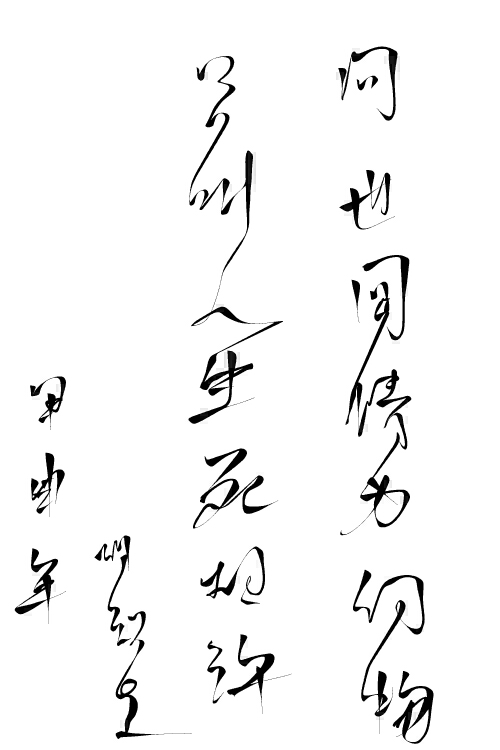 问世间情为何物
只叫人生死相许
甲申年